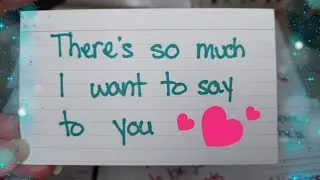 There's so much
I want to say
to you